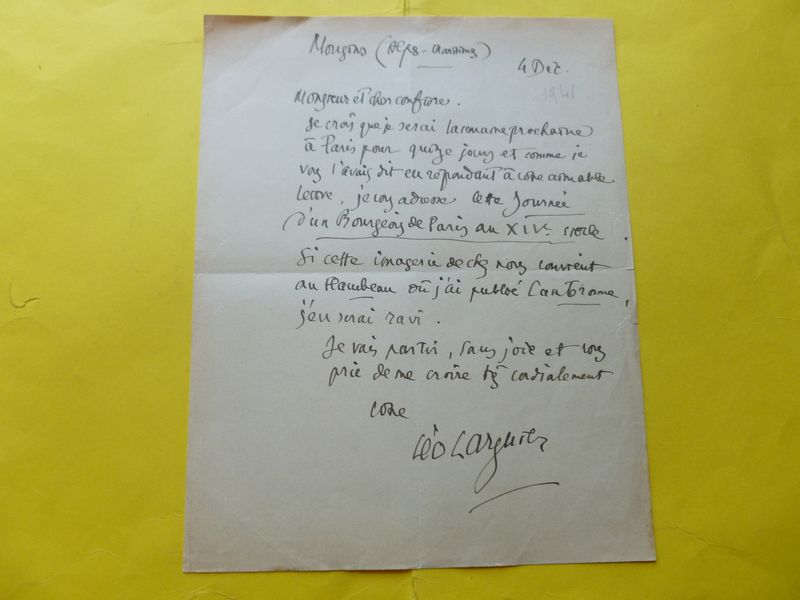 Mougins (Alpes-Maritimes)
4 Dec.
1941
Monsieur et cher confrère.
Je crois que je serai la semaine prochaine
à Paris pour quinze jours et comme je
vous l'avais dit en répondant à votre aimable
lettre, je vous adresse cette Journée
d'un Bourgeois de Paris au XIVe siècle.
Si cette imagerie de chez nous convient
au Flambeau où j'ai publié
j'en serai ravi.
Je vais partir, sans joie et vous
prie de me croire très cordialement
votre
Léo Larguier